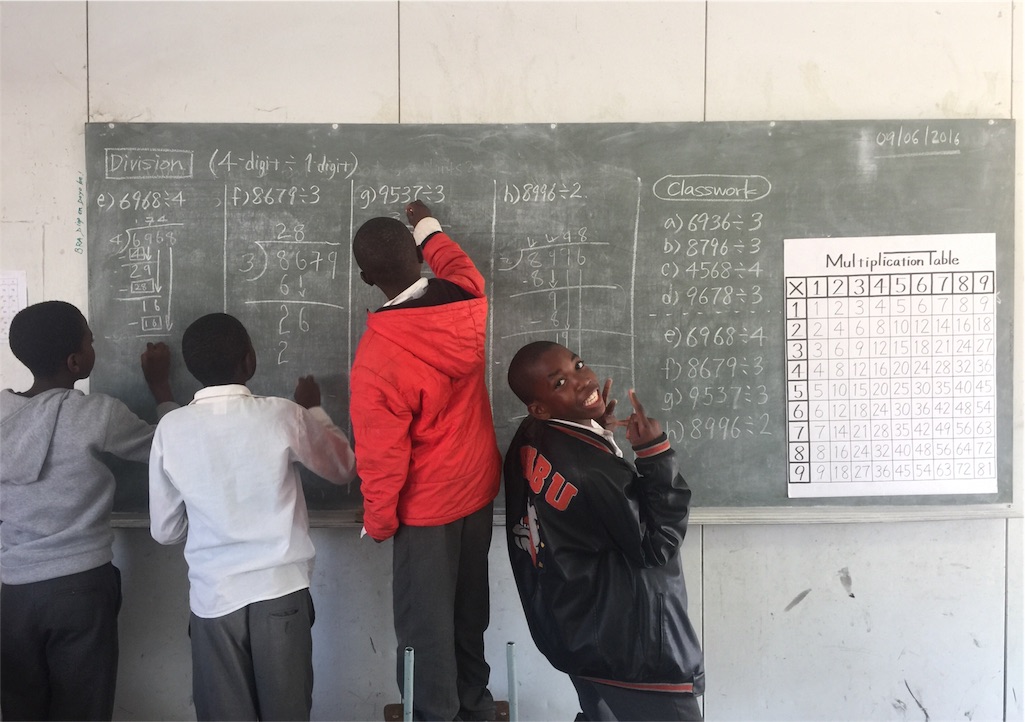 09/06/2016
Division (4-digit ÷ 1 digit)
e) 6968÷4
174
4)6968
-4
29
-28
16
-16
f) 8679÷3
28
3)8679
6
26
2
g) 9537÷3
h) 8996÷2
48
-8
-8
19
Classwork
a) 6936÷3
b) 8796÷3
c) 4568÷4
d) 9678÷3
e) 6968÷4
f) 8679÷3
g) 9537÷3
h) 8996÷2
Multiplication Table
X 1 2 3 4 5 6 7 8 9
1 1 2 3 4 5 6 7 8 9
2 2 4 6 8 10 12 14 16 18
3 3 6 9 12 15 18 21 24 27
4 4 8 12 16 20 24 28 32 36
5 5 10 15 20 25 30 35 40 45
6 6 12 18 24 30 36 42 48 54
7 7 14 21 28 35 42 49 56 63
8 8 16 24 32 40 48 56 64 72
9 9 18 27 36 45 54 63 72 81
BU